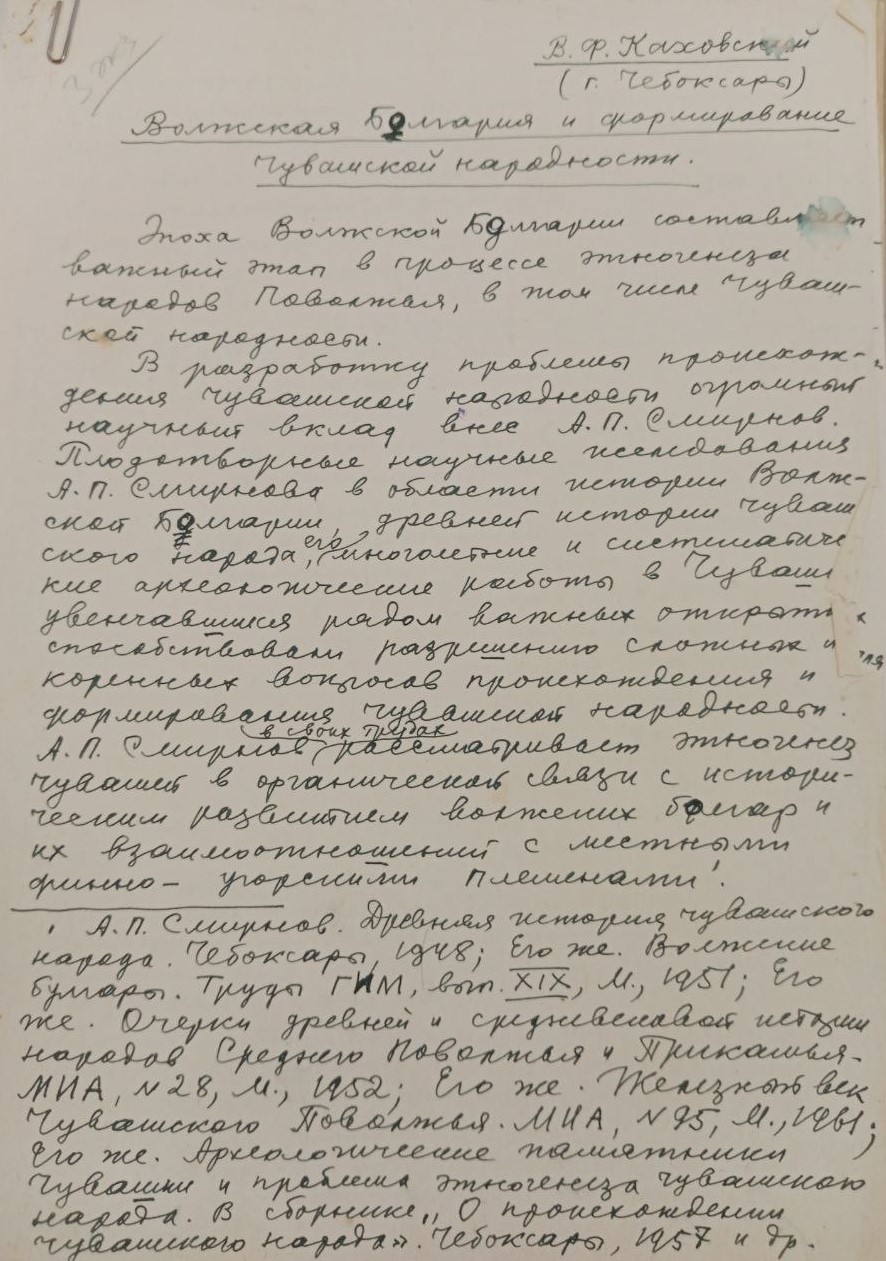 3 экз
В. Ф. Каховский
(г. Чебоксары)
Волжская Болгария и формирование
чувашской народности.
Эпоха Волжской Болгарии составляет
важный этап в процессе этногенеза
народов Поволжья, в том числе чуваш-
ской народности.
В разработку проблемы происхож-
дения чувашской народности огромный
научный вклад внес А.П. Смирнов.
Плодотворные научные исследования
А.П. Смирнова в области истории Волж-
ской Болгарии, древней истории чуваш
ского народа, его многолетние и систематиче
кие археологические работы в Чуваши
увенчавшиеся рядом важных открыти
способствовали разрешению сложных и
коренных вопросов происхождения и
формирования чувашской народности.
А.П. Смирнов в своих трудах рассматривает этногенез
чувашей в органической связи с истори-
ческим развитием волжских болгар и
их взаимоотношений с местными
финно-угорскими племенами¹.
¹ А.П. Смирнов. Древняя история чувашского
народа. Чебоксары, 1948; Его же. Волжские
булгары. Труды ГИМ, вып. XIX, М., 1951; Его
же. Очерки древней и средневековой истории
народов Среднего Поволжья и Прикамья.
МИА, N 28, М., 1952; Его же. Железный век
Чувашского Поволжья. МИА, N 95, М., 1961;
Его же. Археологические памятники
Чувашии и проблема этногенеза чувашского
народа. В сборнике „О происхождении
чувашского народа». Чебоксары, 1957 и др.